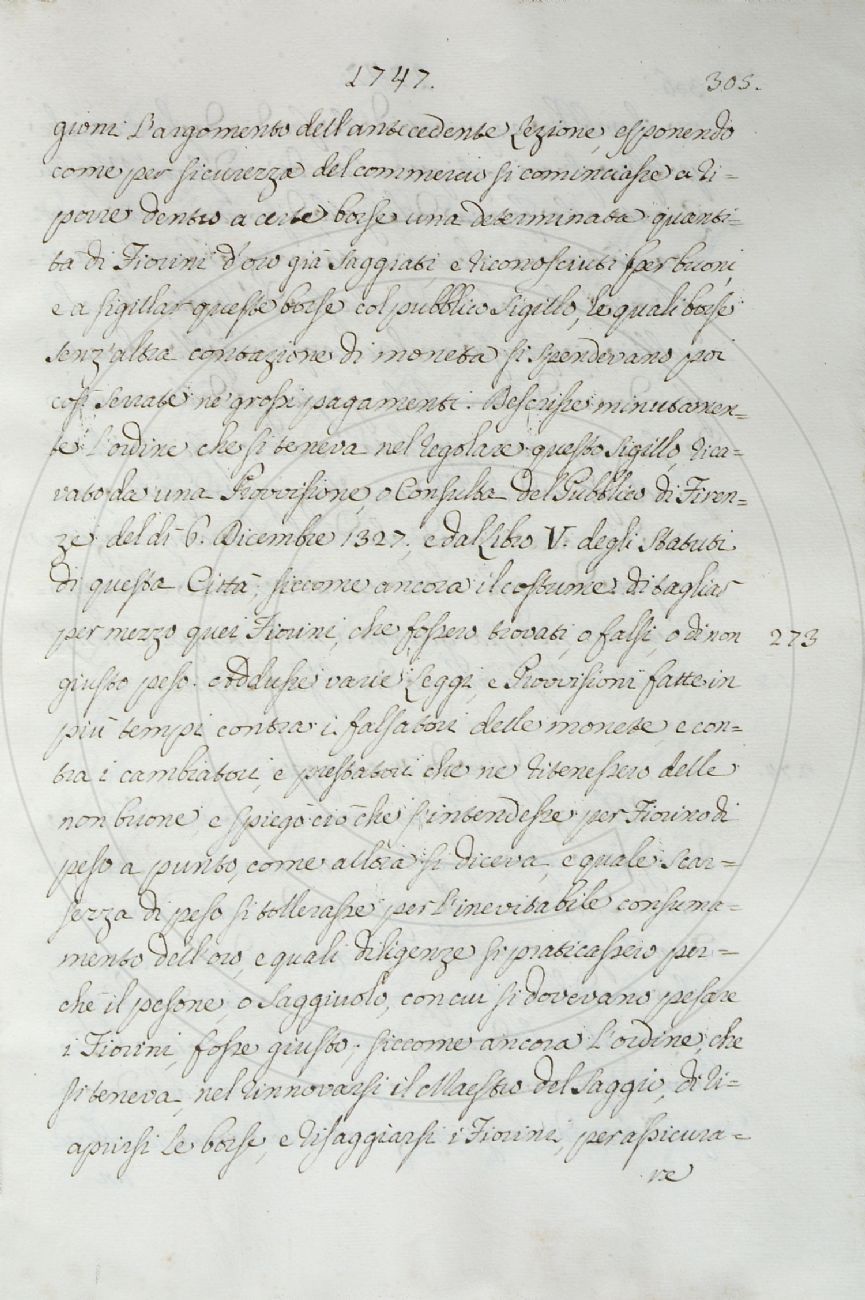 1747. 305.
gioni l'argomento dell'antecedente Lezione, esponendo
come per sicurezza del commercio si cominciasse a ri=
porre dentro a certe borse una determinata quanti=
tà di Fiorini d'oro già saggiati, e riconosciuti per buoni,
e a sigillar queste borse col pubblico Sigillo, le quali borse
senz'altra contazione di moneta si spendevano poi
così serrate ne' grossi pagamenti. Descrisse minutamen=
te l'ordine che si teneva nel regolare questo Sigillo, rica=
vato da una Provvisione, o Consulta del Pubblico di Firen=
ze del dì 6. Dicembre 1327., e dal Libro V. degli Statuti
di questa Città, siccome ancora il costume di tagliar
per mezzo quei Fiorini, che fossero trovati, o falsi, o di non 273
giusto peso. Addusse varie Leggi, e Provvisioni fatte in
più tempi contra i falsatori delle monete, e con=
tra i cambiatori, e prestatori che ne ritenessero delle
non buone, e spiegò ciò che s'intendesse per Fiorino di
peso a punto, come allora si diceva, e quale scar=
sezza di peso si tollerasse per l'inevitabile consuma=
mento dell'oro, e quali diligenze si praticassero per=
chè il pesone, o Saggiuolo, con cui si dovevano pesare
i Fiorini, fosse giusto; siccome ancora l'ordine, che
si teneva, nel rinnovarsi il Maestro del Saggio, di ri=
aprirsi le borse, e risaggiarsi i Fiorini, per assicura=
re